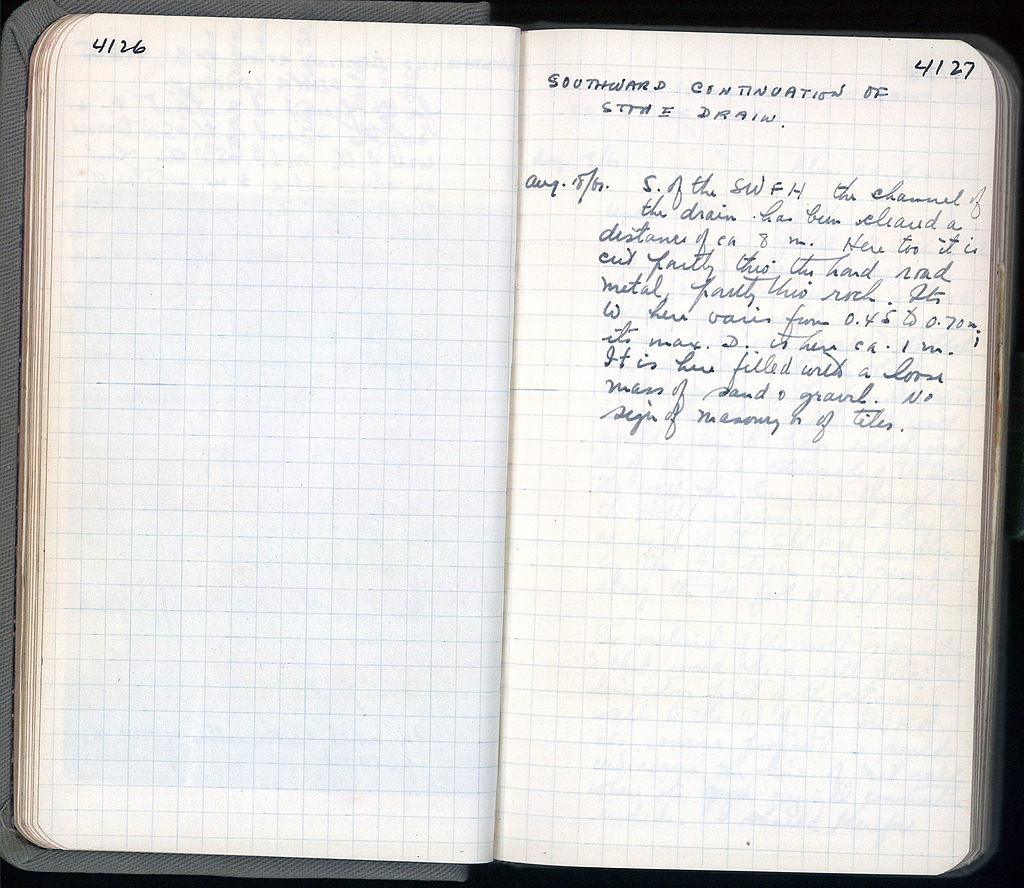 4126
4127
SOUTHWARD CONTINUATION OF
STONE DRAIN.
Aug. S. of the SWFH the channel of
the drain has been cleared a
distance of ca 8 m. Here too it is
cut partly thro the hard road
metal, partly thro rock. Its
W here varies from 0.45 to 0.70 m;
its max. D. is here ca. 1 m.
It is here filled with a loose
mass of sand & gravel. No
sign of masonry or of tiles.